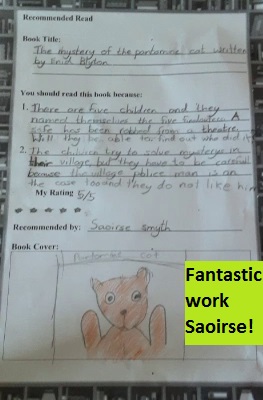 Recommended Read
Book Title:
The mystery of the pantomime cat written
by Enid Blyton
You should read this book because:
1. There are five children and they
named themselves the five findouters. A
safe has been robbed from a theatre.
Will they be able to find out who did it?
2. The children try to solve mysterys in
their village, but they have to be careful
because the village police man is on
the case too and they do not like him
My Rating 5/5
Recommended by: Saoirse Smyth
Book Cover:
Pantomime cat
Fantastic
work
Saoirse!